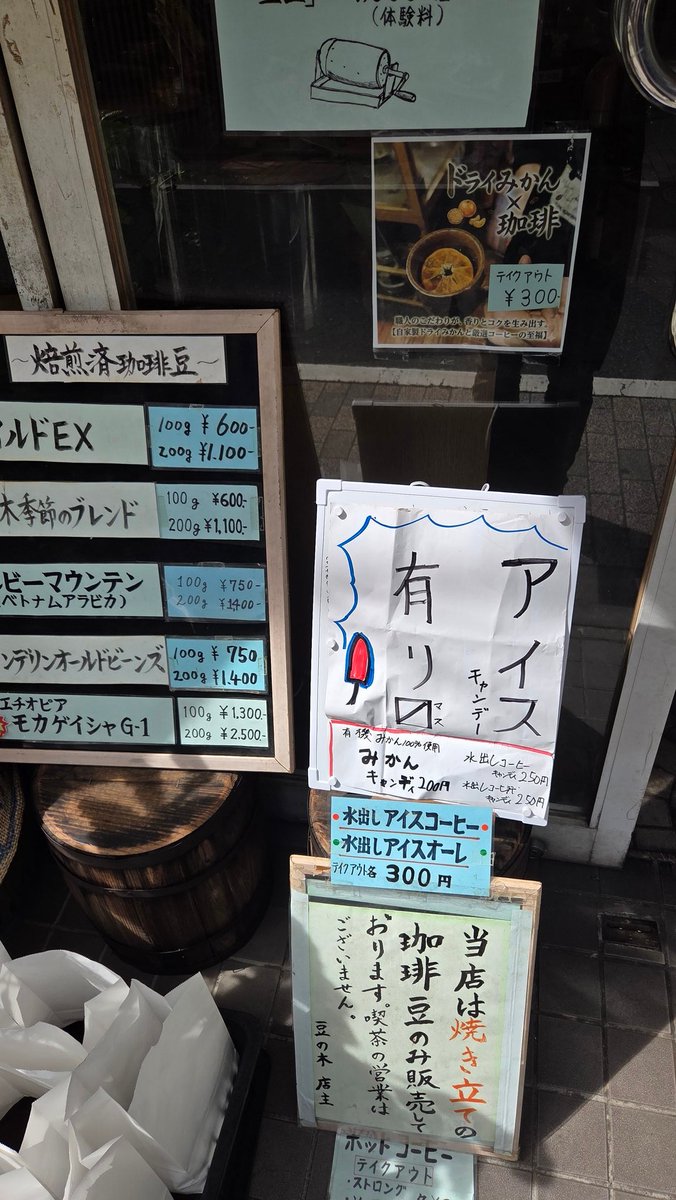 （体験料）
ドライみかん
×
珈琲
テイクアウト
￥300-
職人のこだわりが、香りとコクを生み出す。
【自家製ドライみかんと厳選コーヒーの至福】
～焙煎済珈琲豆～
イルドEX
100g ￥600-
200g ￥1,100-
木季節のブレンド
100g ￥600-
200g ￥1,100-
ルビーマウンテン
（ベトナムアラビカ）
100g ￥750-
200g ￥1400-
ンデリンオールドビーンズ
100g ￥750
200g ￥1,400-
エチオピア
モカゲイシャG-1
100g ￥1,300-
200g ￥2,500-
アイス
キャンデー
有リ〼
マス
みかん100%使用
みかん
キャンディ200円
水出しコーヒー
キャンディ250円
キャンディ250円
水出しアイスコーヒー
水出しアイスオーレ
テイクアウト各 300円
当店は焼き立ての
珈琲豆のみ販売して
おります。喫茶の営業は
ございません。
豆の木 店主
ホットコーヒー
テイクアウト
・ストロング